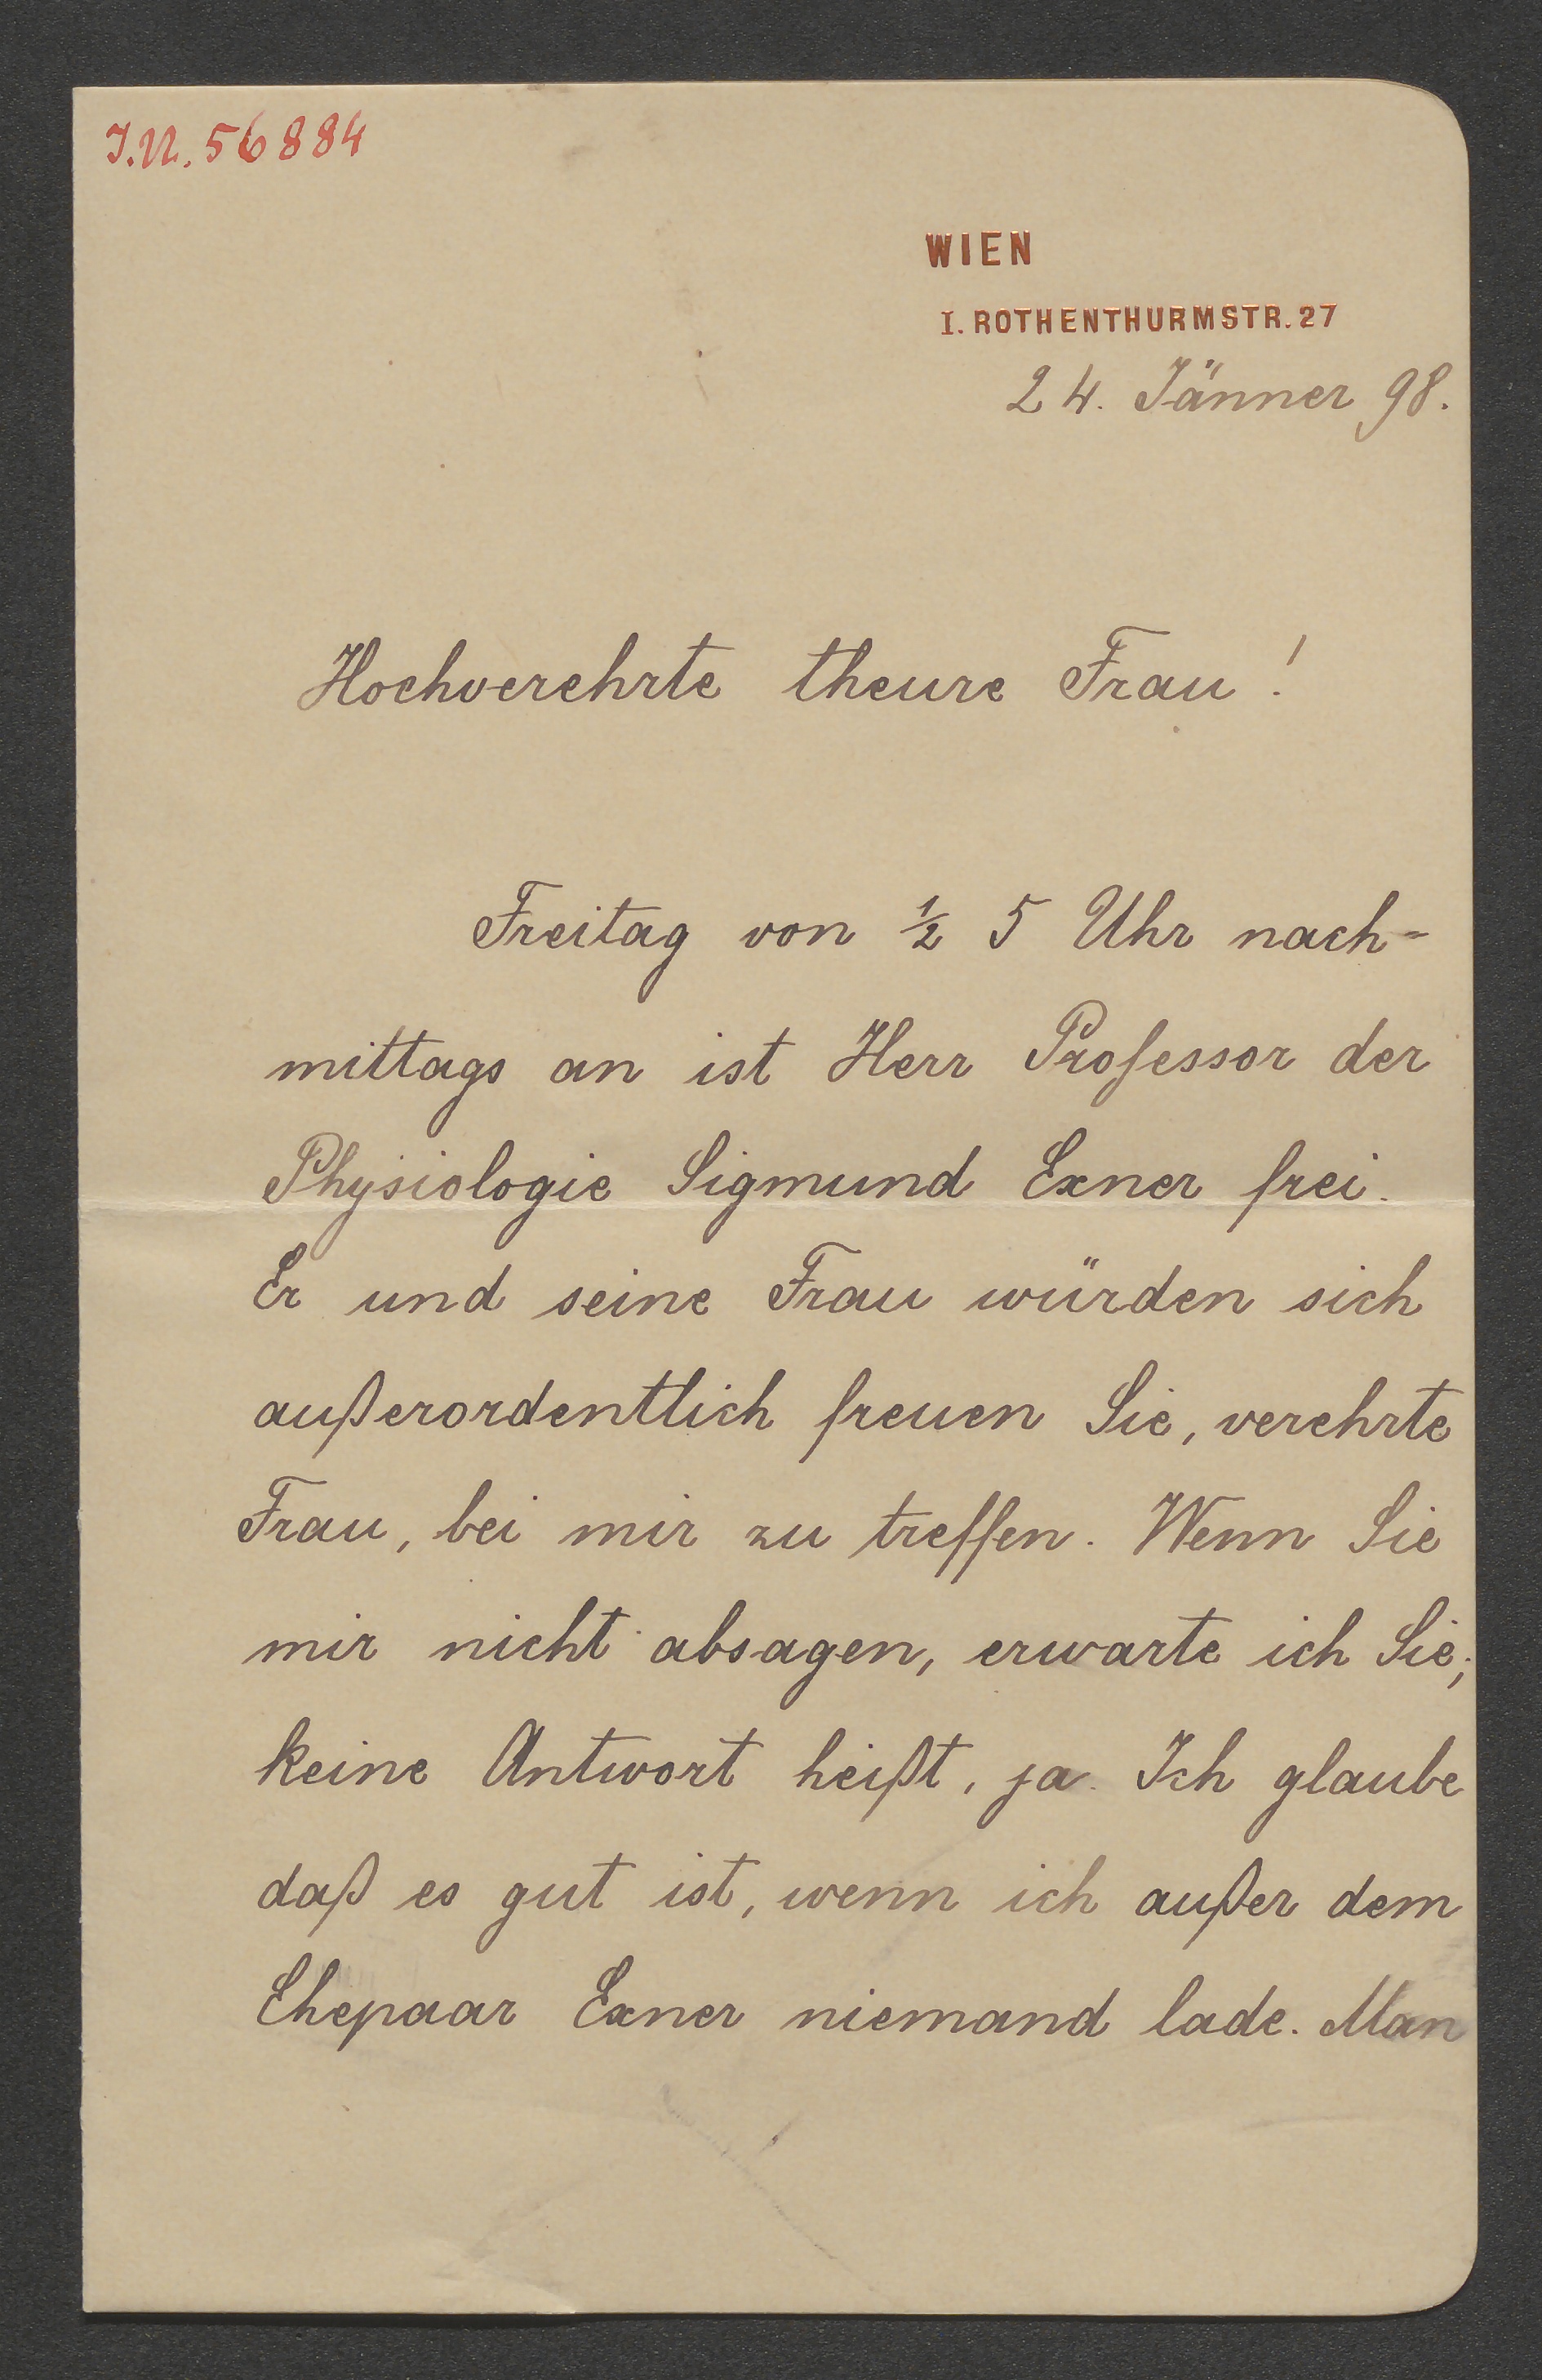 I.N. 56884
WIEN
I. ROTHENTHURMSTR. 27
24. Jänner 98.
Hochverehrte theure Frau!
Freitag von ½ 5 Uhr nach-
mittags an ist Herr Professor der
Physiologie Sigmund Exner frei.
Er und seine Frau würden sich
außerordentlich freuen Sie, verehrte
Frau, bei mir zu treffen. Wenn Sie
mir nicht absagen, erwarte ich Sie;
keine Antwort heißt, ja. Ich glaube
daß es gut ist, wenn ich außer dem
Ehepaar Exner niemand lade. Man